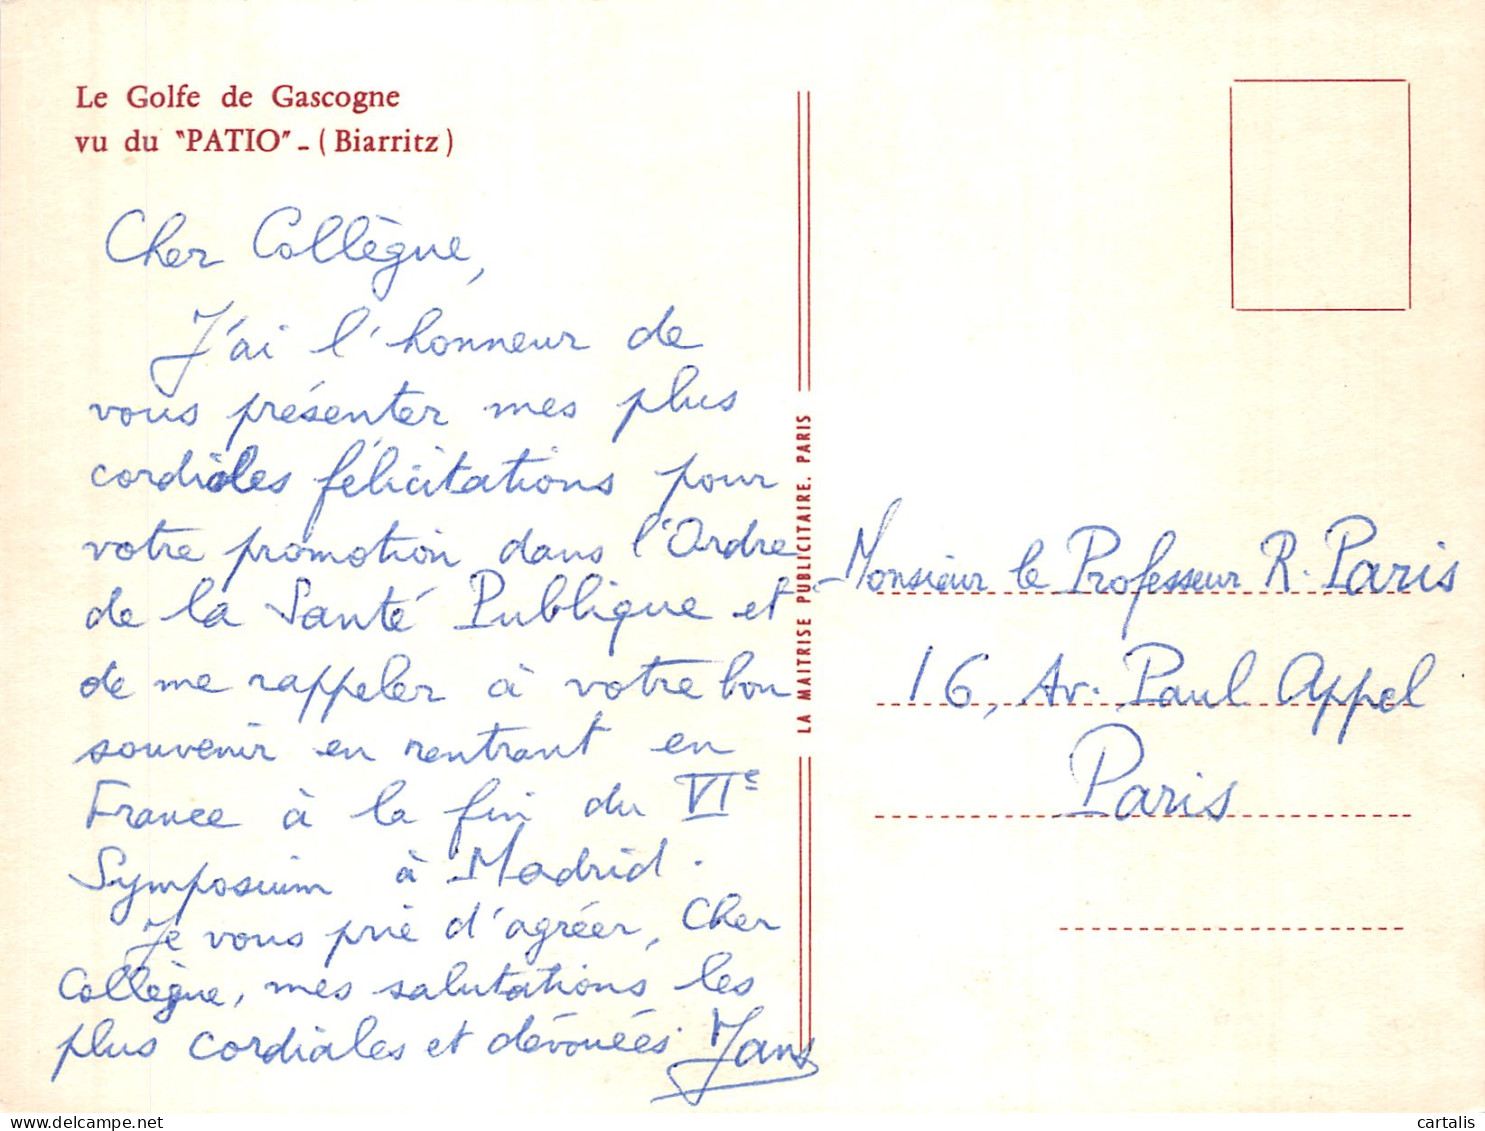 Le Golfe de Gascogne
vu du "PATIO" - (Biarritz)
Cher Collègue,
J'ai l'honneur de
vous présenter mes plus
cordiales félicitations pour
votre promotion dans l'Ordre
de la Santé Publique et
de me rappeler à votre bon
souvenir en rentrant en
France à la fin du VIe
Symposium à Madrid.
Je vous prie d'agréer, Cher
Collègue, mes salutations les
plus cordiales et dévouées.
Jans
LA MAITRISE PUBLICITAIRE. PARIS
Monsieur le Professeur R. Paris
16, Av. Paul Appel
Paris
cartalis